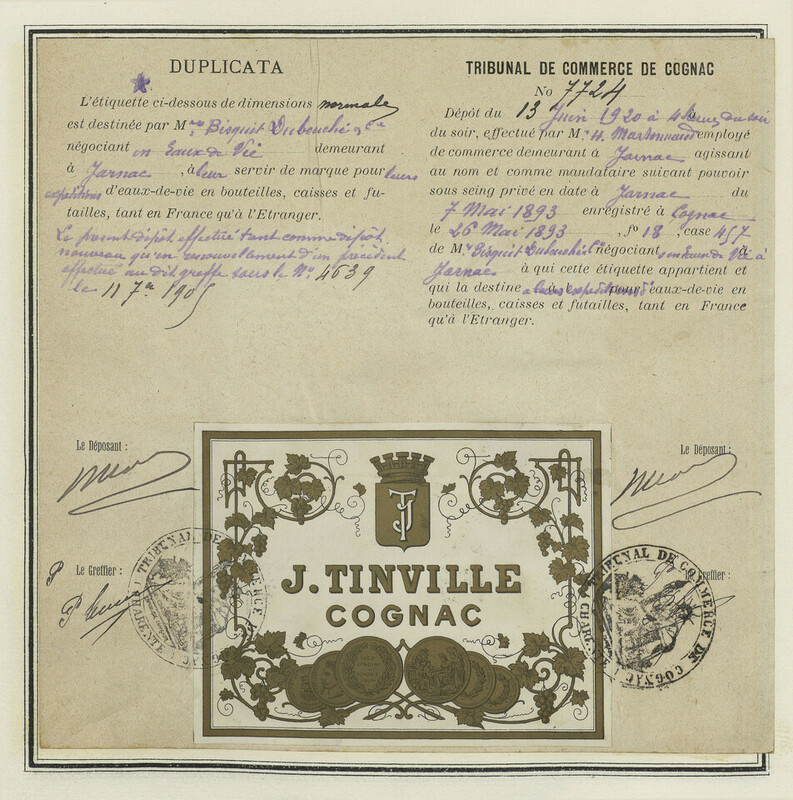 DUPLICATA
L'étiquette ci-dessous de dimensions normale
est destinée par M Bisquit Dubouché & Cie
négociant en Eaux de Vie demeurant
à Jarnac, à leur servir de marque pour leurs
expéditions d'eaux-de-vie en bouteilles, caisses et fu-
tailles, tant en France qu'à l'Etranger.
Le présent dépôt effectué tant comme dépôt
nouveau qu'en renouvellement d'un précédent
effectué au dit greffe sous le No 4639
le 11 7bre 1905
TRIBUNAL DE COMMERCE DE COGNAC
No 7724
Dépôt du 13 Juin 1920 à 4 heures du soir
du soir, effectué par M. H. employé
de commerce demeurant à Jarnac agissant
au nom et comme mandataire suivant pouvoir
sous seing privé en date à Jarnac du
7 Mai 1893 enregistré à Cognac
le 26 Mai 1893, fo 18, case 457
de M. Bisquit Dubouché & Cie négociants en Eaux de Vie à
Jarnac à qui cette étiquette appartient et
qui la destine à leurs expéditions d'eaux-de-vie en
bouteilles, caisses et futailles, tant en France
qu'à l'Etranger.
Le Déposant :
Le Déposant :
Le Greffier :
Greffier :
TJ
J. TINVILLE
COGNAC
TRIBUNAL DE COMMERCE DE COGNAC
CHARENTE
TRIBUNAL DE COMMERCE DE COGNAC
CHARENTE